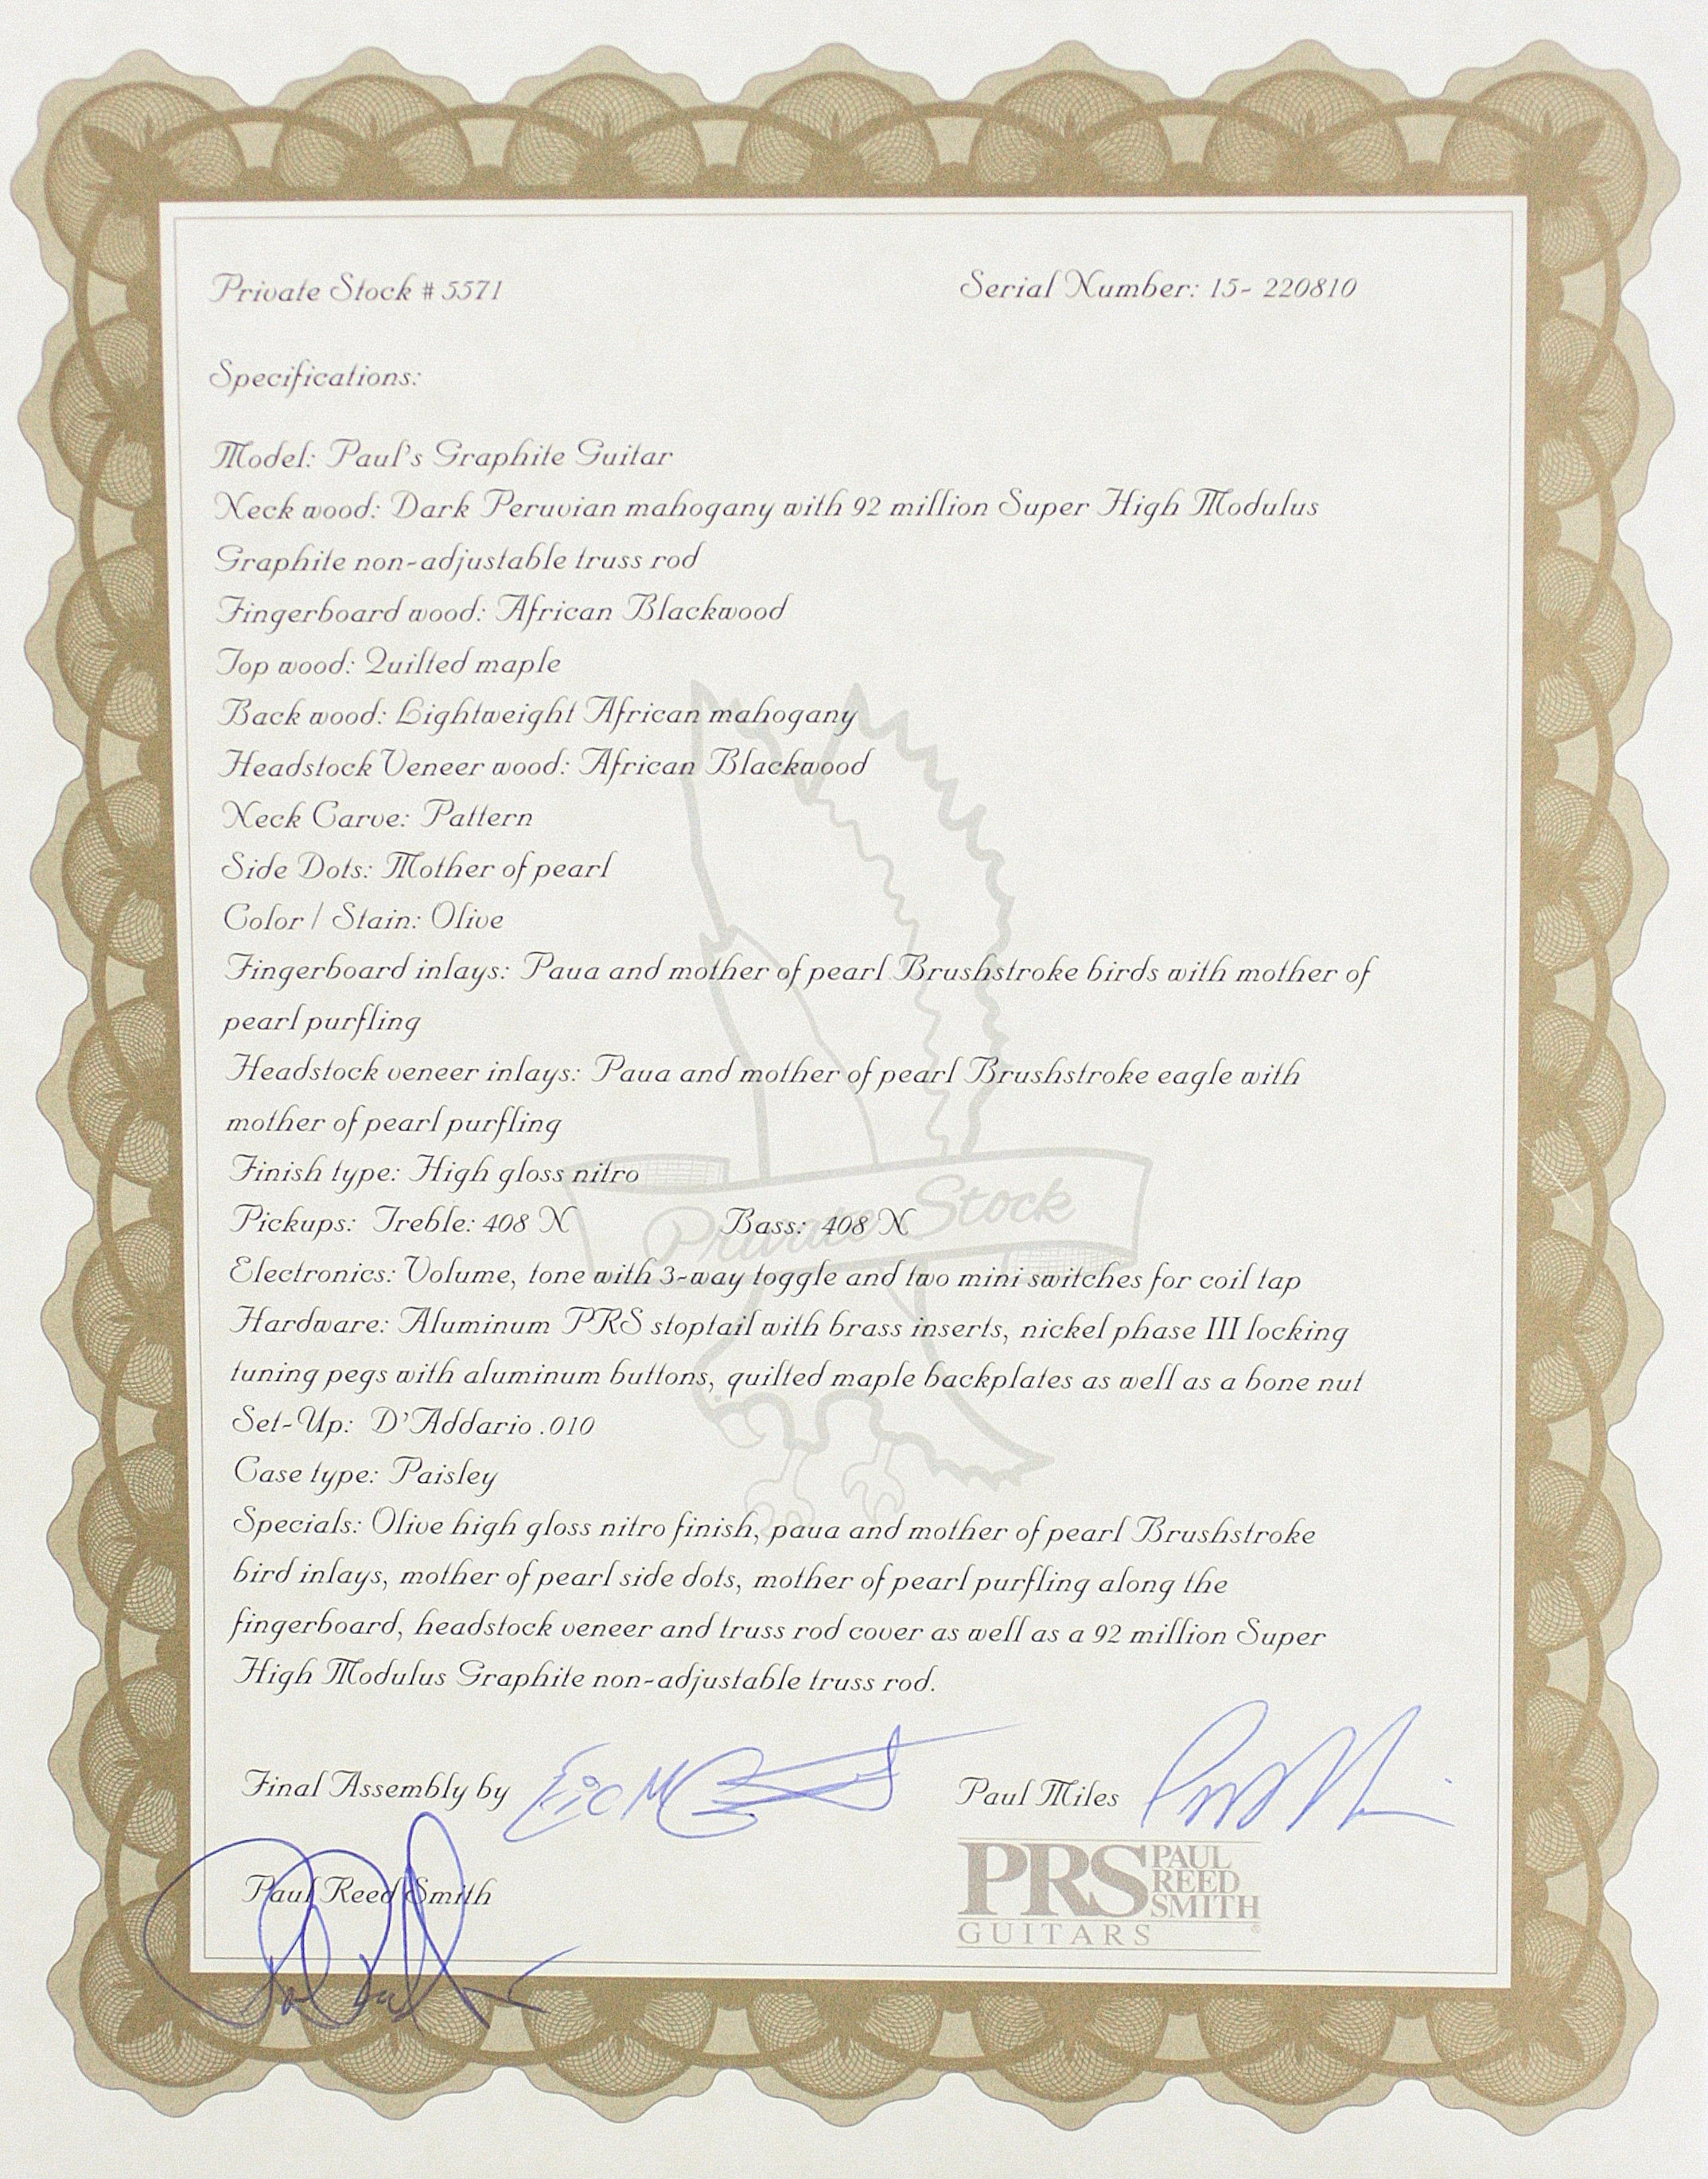 Private Stock # 5571
Serial Number: 15- 220810
Specifications:
Model: Paul's Graphite Guitar
Neck wood: Dark Peruvian mahogany with 92 million Super High Modulus
Graphite non-adjustable truss rod
Fingerboard wood: African Blackwood
Top wood: Quilted maple
Back wood: Lightweight African mahogany
Headstock Veneer wood: African Blackwood
Neck Carve: Pattern
Side Dots: Mother of pearl
Color / Stain: Olive
Fingerboard inlays: Paua and mother of pearl Brushstroke birds with mother of
pearl purfling
Headstock veneer inlays: Paua and mother of pearl Brushstroke eagle with
mother of pearl purfling
Finish type: High gloss nitro
Pickups: Treble: 408 N Bass: 408 N
Private Stock
Electronics: Volume, tone with 3-way toggle and two mini switches for coil tap
Hardware: Aluminum PRS stoptail with brass inserts, nickel phase III locking
tuning pegs with aluminum buttons, quilted maple backplates as well as a bone nut
Set-Up: D'Addario .010
Case type: Paisley
Specials: Olive high gloss nitro finish, paua and mother of pearl Brushstroke
bird inlays, mother of pearl side dots, mother of pearl purfling along the
fingerboard, headstock veneer and truss rod cover as well as a 92 million Super
High Modulus Graphite non-adjustable truss rod.
Final Assembly by
Paul Miles
Paul Reed Smith
PRS PAUL REED SMITH
GUITARS ®